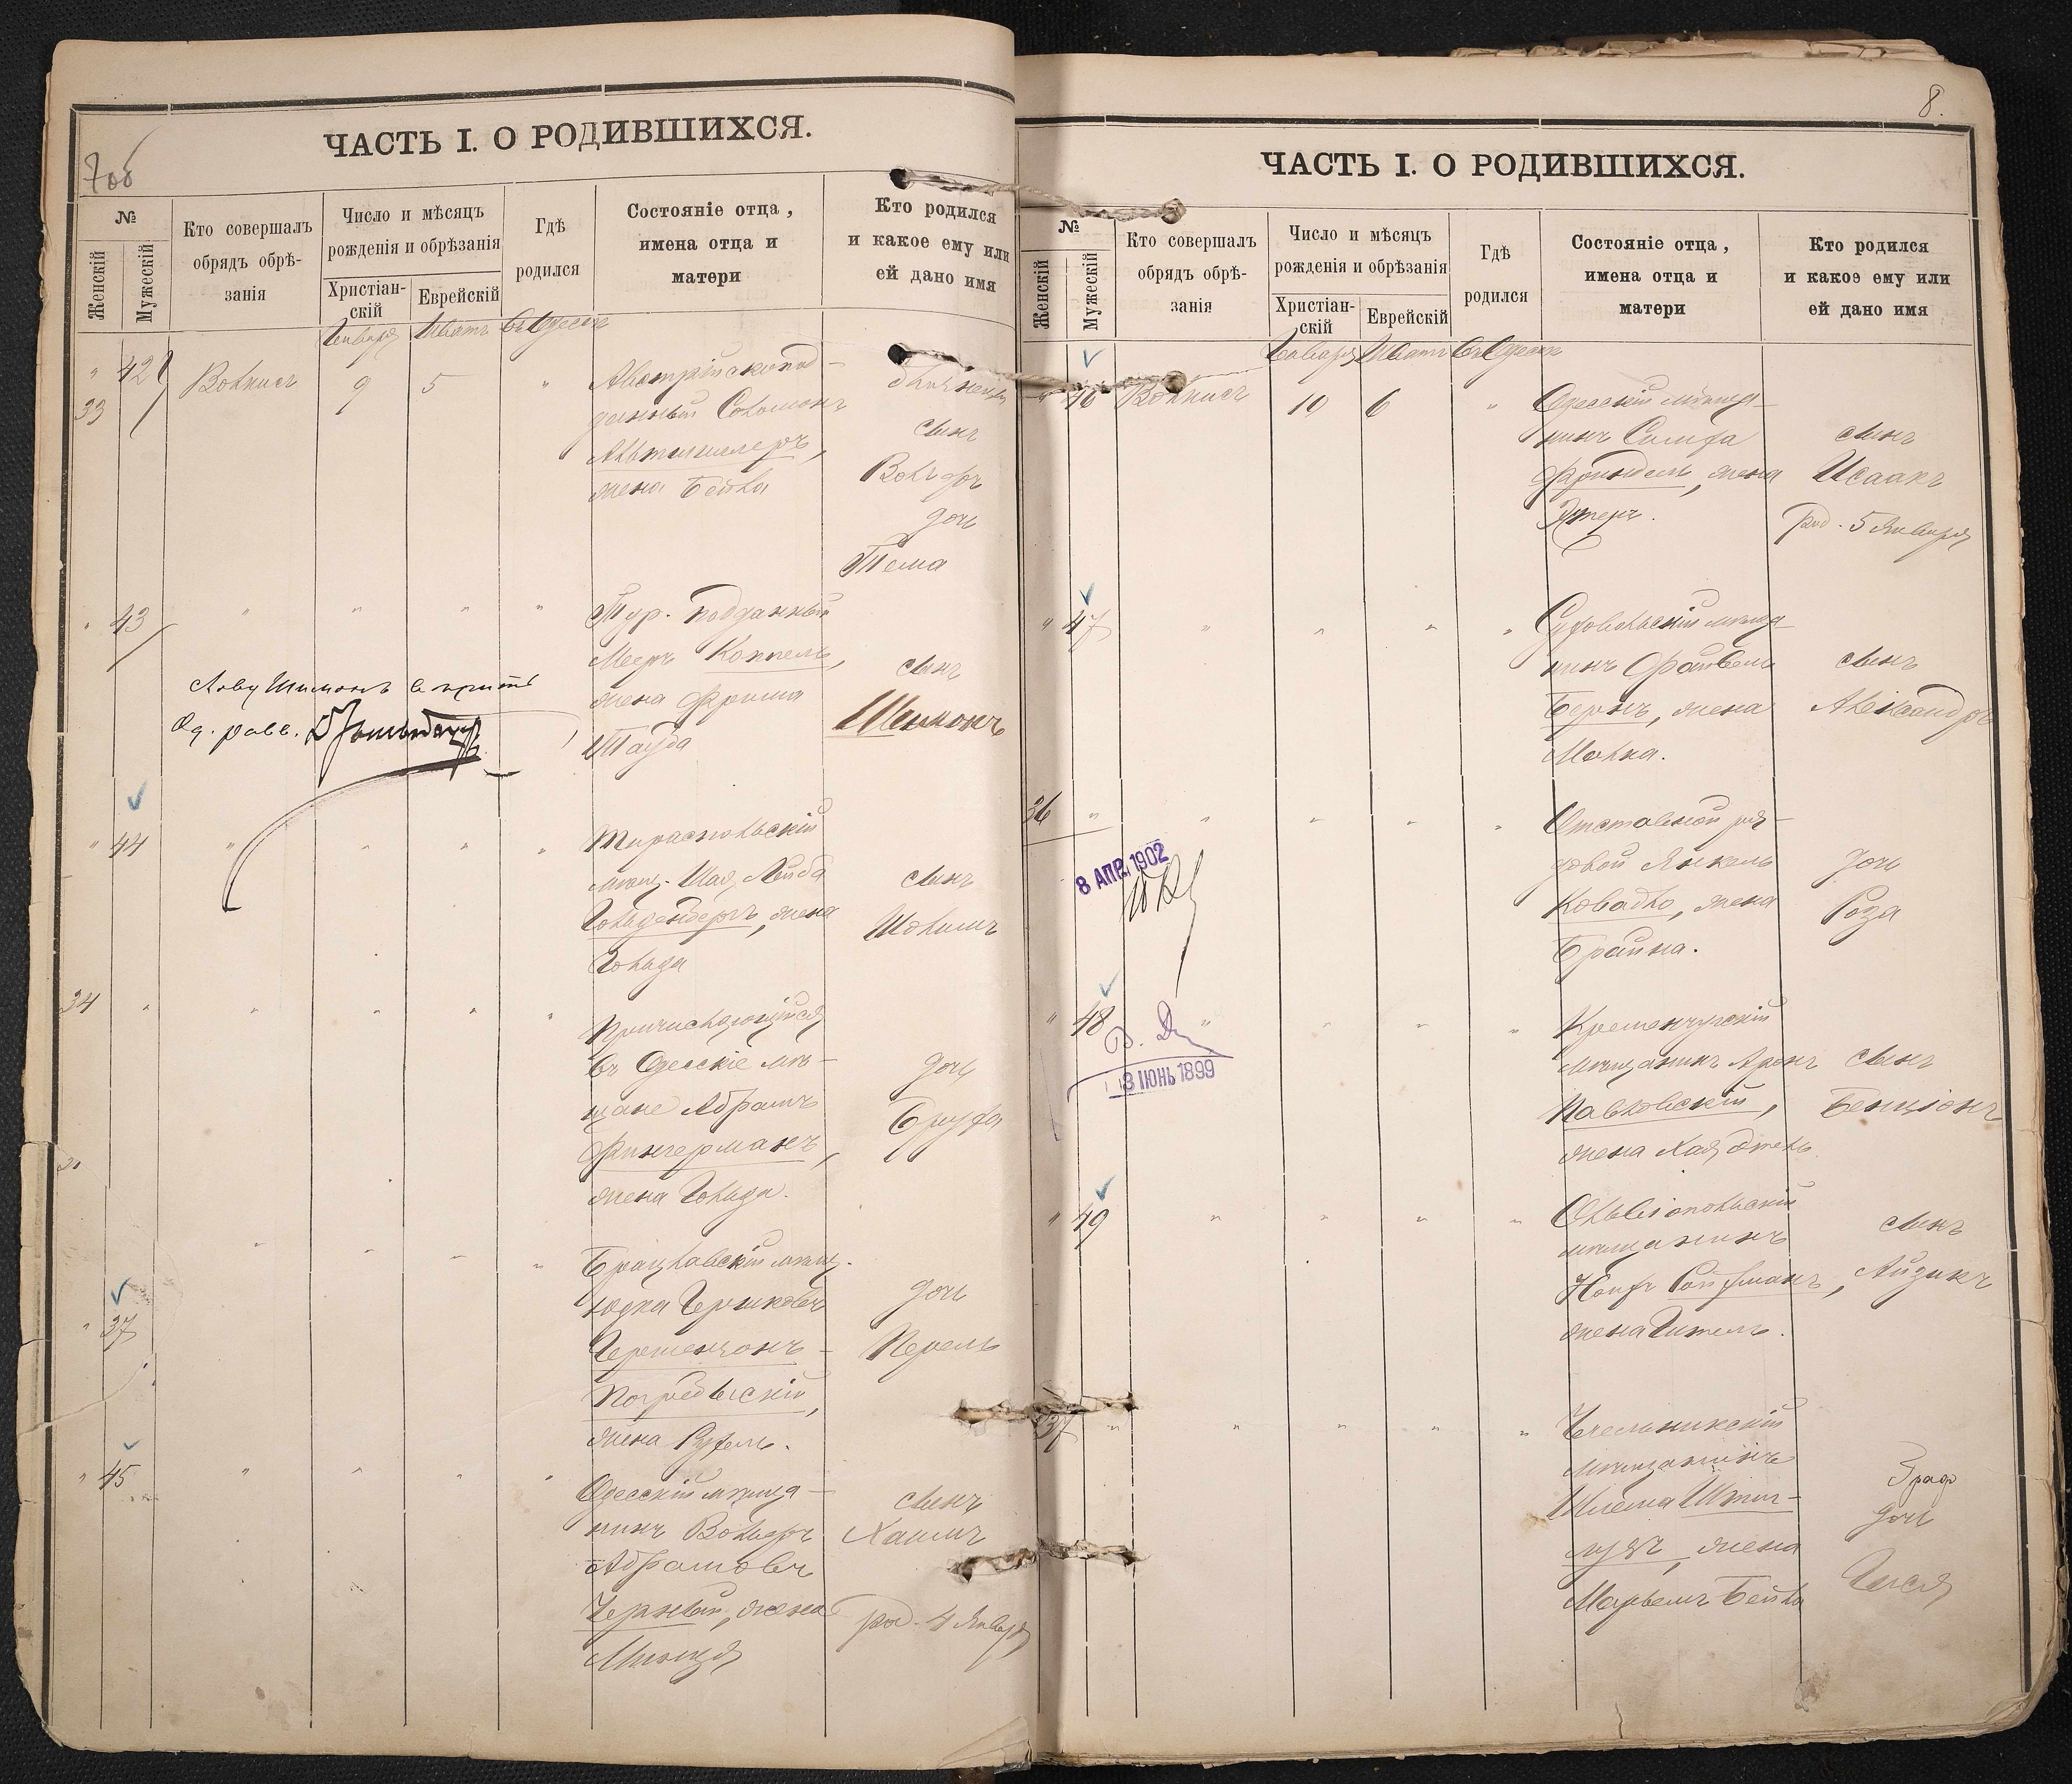 ЧАСТЬ I. О РОДИВШИХСЯ.
7об
№
Женскій
Мужескій
Кто совершалъ
обрядъ обрѣ-
занія
Число и мѣсяцъ
рожденія и обрѣзанія
Христіан-
скій
Еврейскій
Гдѣ
родился
Состояніе отца,
имена отца и
матери
Кто родился
и какое ему или
ей дано имя
Января Шватъ Въ Одессѣ
" 42
33
9 5 "
Австрійскопод-
данный Соломонъ
Альтшиллеръ,
жена Бейла
двойники
сынъ
Вольфъ
дочь
Тема
" 43 " " " "
Тур. подданный
Мееръ Коппель,
жена Фрима
Тауба
сынъ
Шимонъ
Слову Шимонъ вѣрить
Од. равв.
" 44 " " " "
Тираспольскій
мѣщ. Шая Лейба
Гольденбергъ, жена
Гольда
сынъ
Шоломъ
34 " " " " "
Причисляющійся
въ Одесскіе мѣ-
щане Абрамъ
Фингерманъ,
жена Гольда.
дочь
Бруха
" 37 " " " "
Брацлавскій мѣщ.
Юдка Гершковъ
Гершензонъ-
Погребыскій,
жена Рухель.
дочь
Перель
" 45 " " " "
Одесскій мѣща-
нинъ Вольфъ
Абрамовъ
Черный, жена
Минця
сынъ
Хаимъ
род. 4 Января
8.
ЧАСТЬ I. О РОДИВШИХСЯ.
№
Женскій
Мужескій
Кто совершалъ
обрядъ обрѣ-
занія
Число и мѣсяцъ
рожденія и обрѣзанія
Христіан-
скій
Еврейскій
Гдѣ
родился
Состояніе отца,
имена отца и
матери
Кто родился
и какое ему или
ей дано имя
Января Шватъ Въ Одессѣ
" 46 10 6 "
Одесскій мѣща-
нинъ Симха
Фриндель, жена
Эстеръ.
сынъ
Исаакъ
род. 5 Января
" 47 " " " "
мѣща-
нинъ Файвель
Бернъ, жена
Малка.
сынъ
Александръ
36 " " " " "
Отставной ря-
довой Янкель
Ковадло, жена
Брайна.
дочь
Роза
8 АПР. 1902
" 48 " " " "
Кременчугскій
мѣщанинъ Аронъ
Павловскій,
жена Хая Этель.
сынъ
Бенціонъ
13 ІЮНЬ 1899
" 49 " " " "
Ольвіопольскій
мѣщанинъ
Ройфманъ,
жена Гитель.
сынъ
Айзикъ
37 " " " " "
Хмельникскій
мѣщанинъ
Шлема
жена
Марьемъ Бейла
дочь
Гися